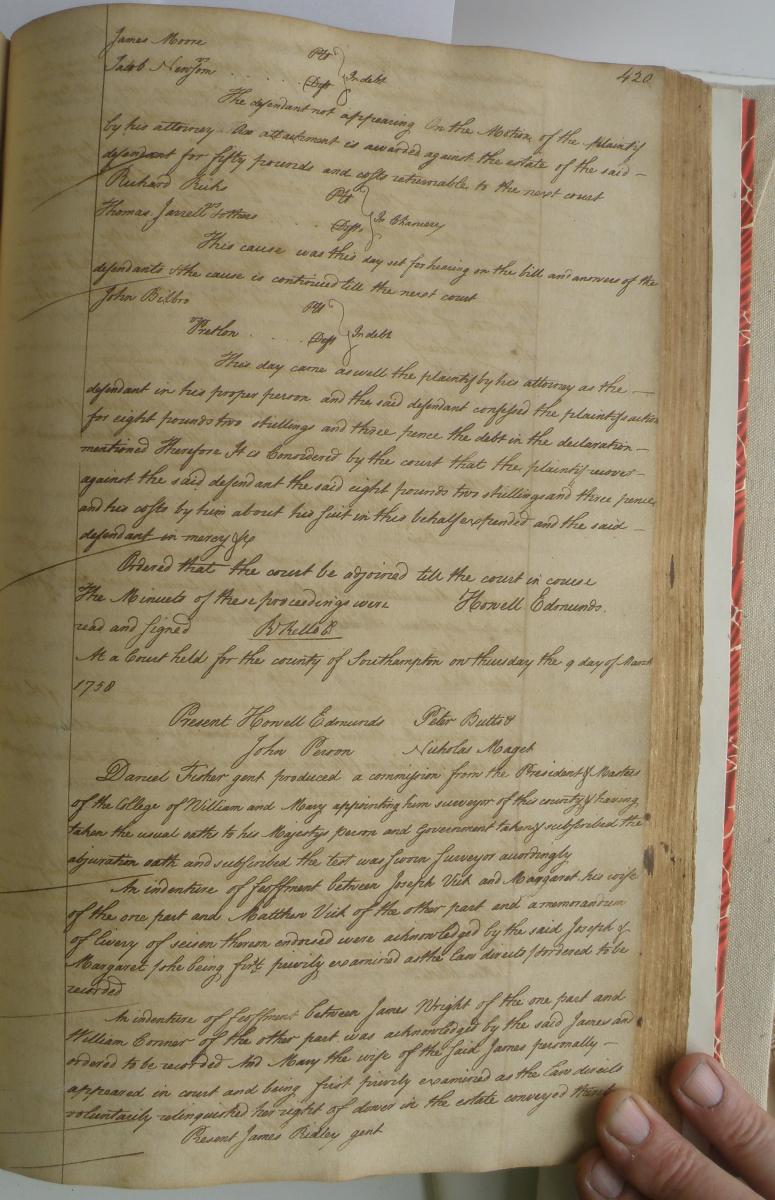 420
James Moore Plt
Jacob Newsom Deft In debt
The defendant not appearing On the Motion of the plaintif
by his attorney An attachment is awarded against the estate of the said
defendant for fifty pounds and costs returnable to the next court
Richard Ricks Plt
Thomas Jarrell & others Defts In Chancery
This cause was this day set for hearing on the bill and answers of the
defendants & the cause is continued till the next court
John Bilbro Plt
Pretlon Deft In debt
This day came aswell the plaintif by his attorney as the
defendant in his proper person and the said defendant confessed the plaintifs action
for eight pounds two shillings and three pence the debt in the declaration
mentioned Therefore It is Considered by the court that the plaintif recover
against the said defendant the said eight pounds two shillings and three pence
and his costs by him about his suit in this behalf expended and the said
defendant in mercy &c
Ordered that the court be adjoined till the court in course
The Minuets of these proceedings were Howell Edmunds.
read and signed
At a Court held for the county of Southampton on thursday the 9 day of March
1758
Present Howell Edmunds Peter Butts
John Person Nicholas Maget
Daniel Fisher gent produced a commission from the President & Masters
of the College of William and Mary appointing him surveyor of this county & having
taken the usual oaths to his Majestys person and Government taken & subscribed the
abjuration oath and subscribed the test was sworn Surveyor accordingly
An indenture of feoffment between Joseph Vick and Margaret his wife
of the one part and Matthew Vick of the other part and a memorandum
of livery of seisen thereon endorsed were acknowledged by the said Joseph &
Margaret she being first privily examined as the Law directs & ordered to be
recorded
An indenture of feoffment between James Wright of the one part and
William Conner of the other part was acknowledged by the said James and
ordered to be recorded And Mary the wife of the said James personally
appeared in court and being first privily examined as the Law directs
voluntarily relinquished her right of dower in the estate conveyed
Present James Ridley gent